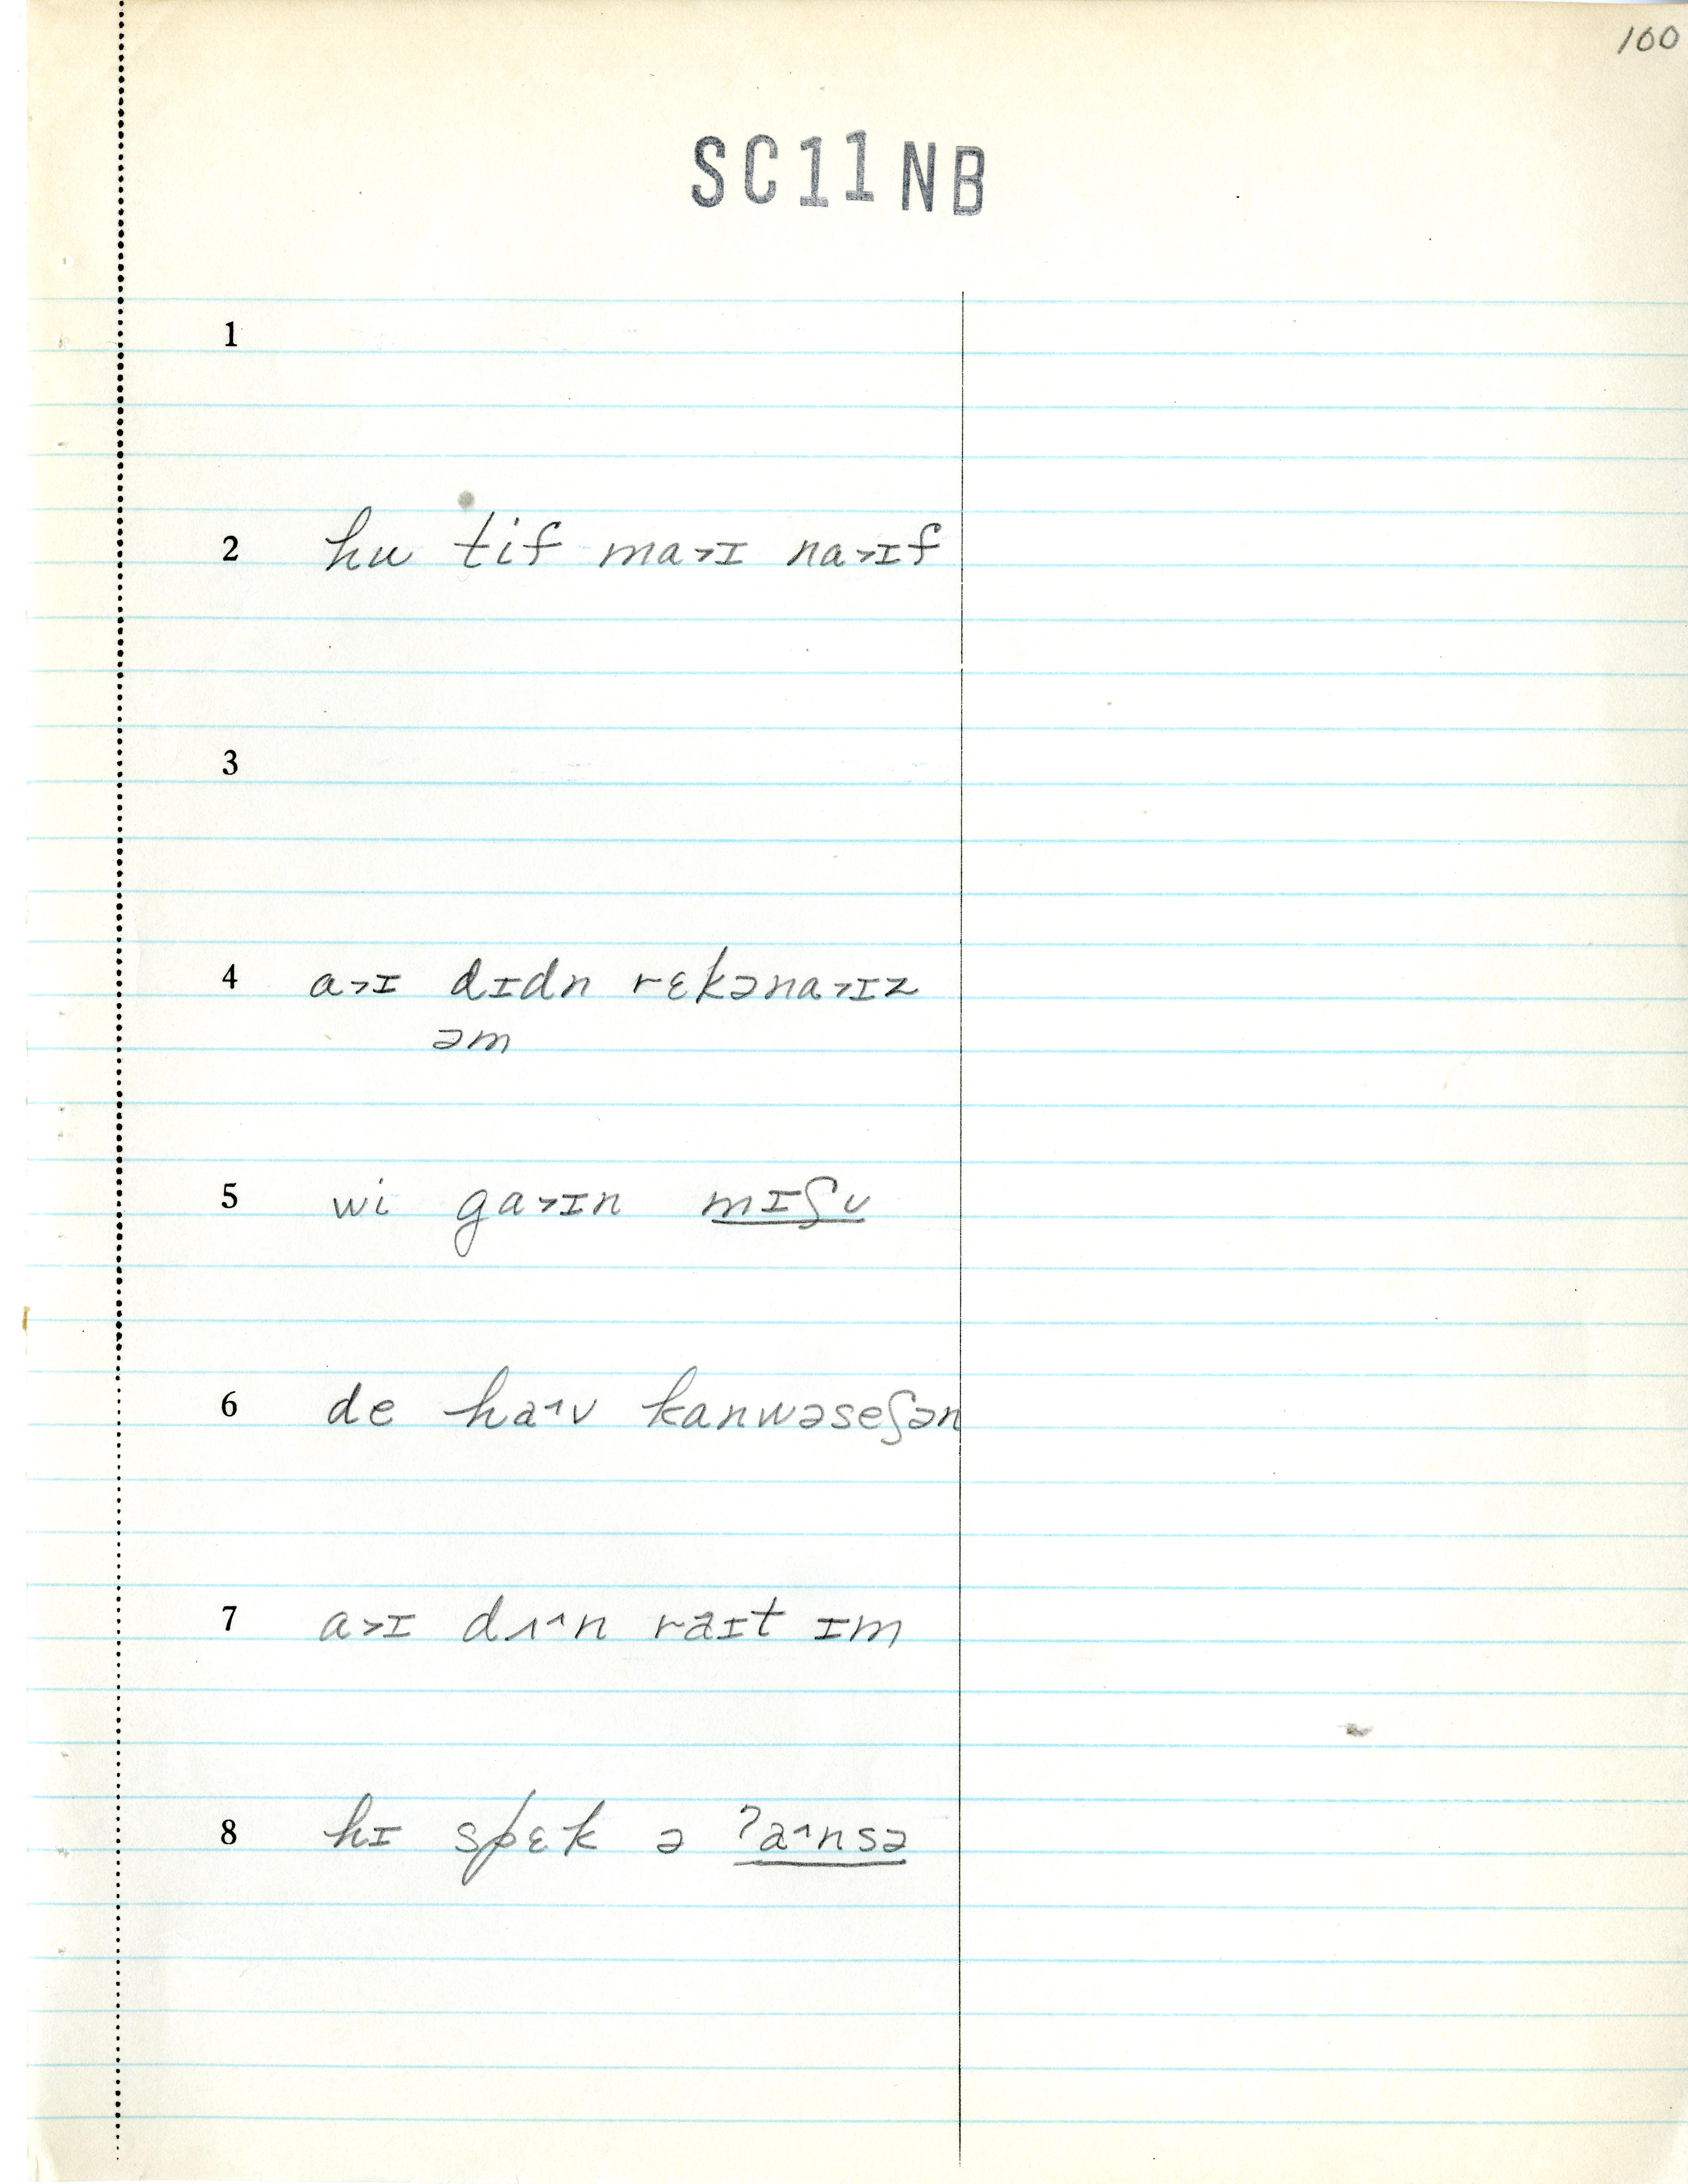 100
SC11NB
1
2 hu tif ma˃ɪ na˃ɪf
3
4 a˃ɪ dɪdn rɛkəna˃ɪz
əm
5 wi ga˃ɪn mɪʃʊ
6 de ha˄ʊ kanwəseʃən
7 a˃ɪ dɪ˄n raɪt ɪm
8 hɪ spɛk ə ʔa˄nsə